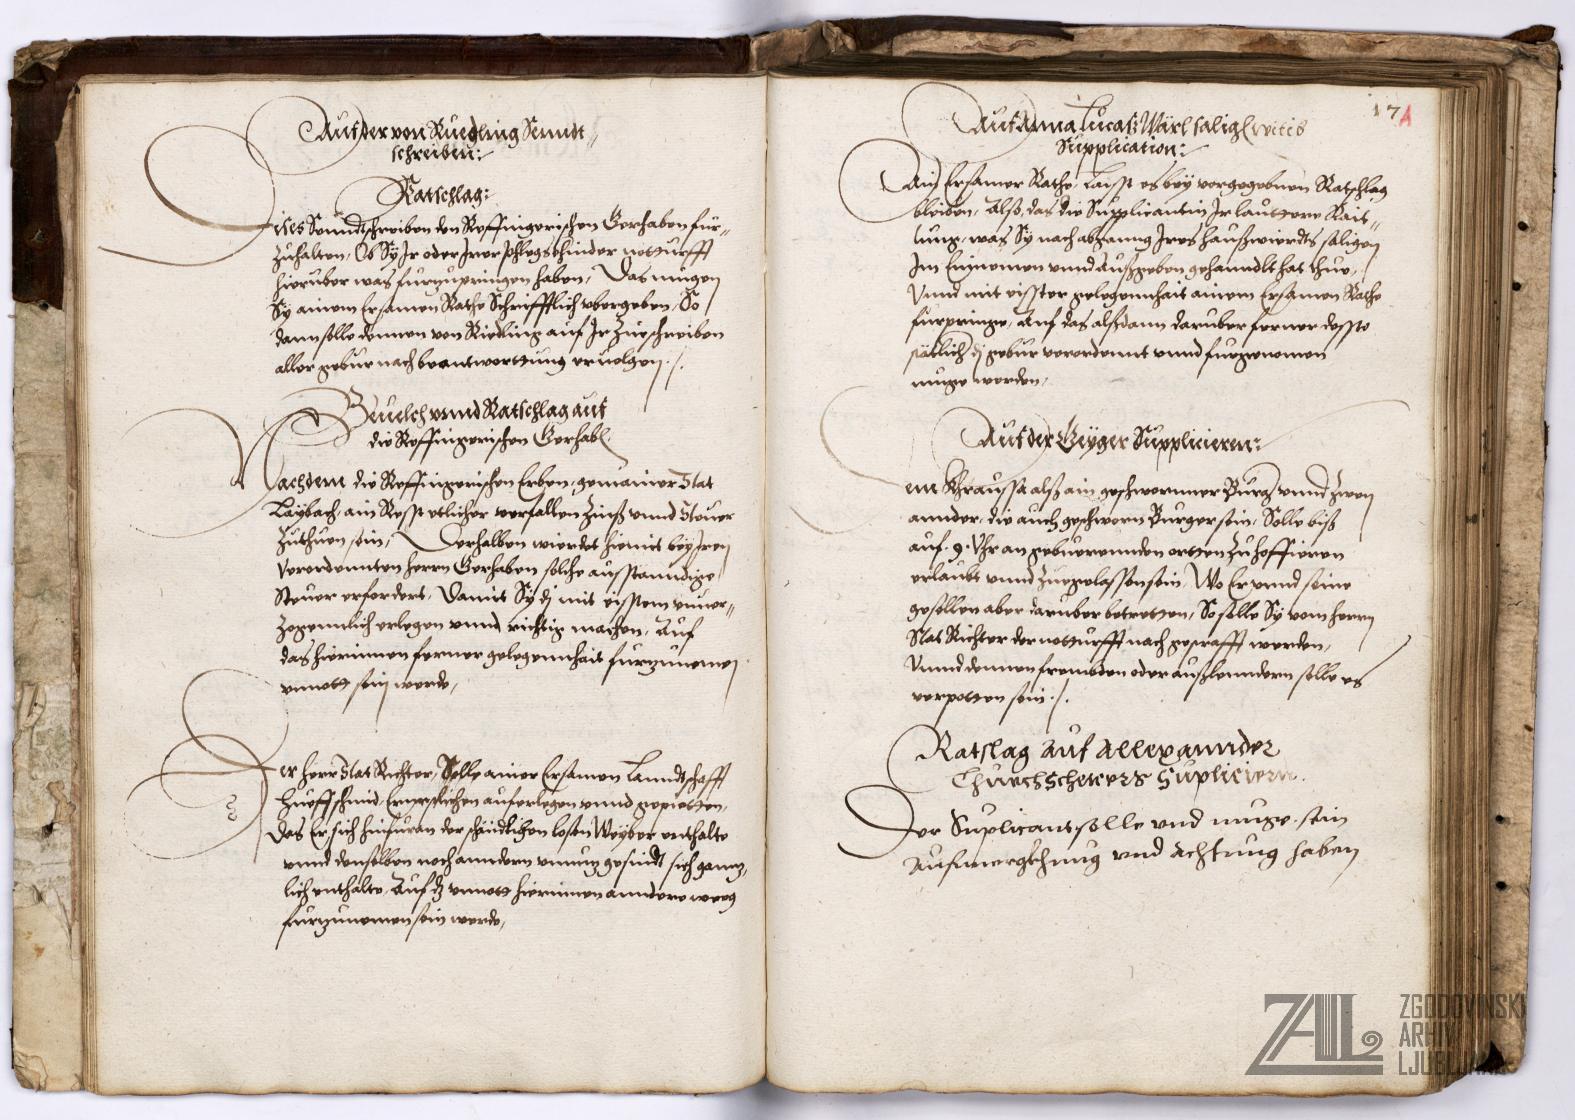 Auf der von Ruedling Senndt
schreiben:
Ratschlag:
Dises Senndtschreiben den Reffingerischen Gerhaben für
zuhalten, Ob Sÿ Ir oder Irer Pflegskhinder notturfft
hieruber was furzupringen haben, Das mugen
Sÿ ainem Ersamen Rathe Schrifftlich vbergeben, So
dann solle dennen von Riedling auf Ir Zueschreiben
aller gebur nach beantworttung eruolgen ./.
Beuelch vnnd Ratschlag auf
die Reffingerischen Gerhab.
Nachdem die Reffingerischen Erben, gemainer Stat
Laÿbach, ain Resst etlicher verfallen Zinß vnnd Steuer
Zuthuen sein, Derhalben wierdet hiemit beÿ Iren
Verordennten herrn Gerhaben solche ausstanndige
Steuer erfordert, Damit Sÿ dj mit eisstem vnuer
zogennlich erlegen vnnd richtig machen, Auf
das hierinnen ferner gelegennhait furzunemen
vnnott sein werde,
Der herr Stat Richter, Solle ainer Ersamen Lanndtschafft
Hueffschmid, Ernnstlichen auferlegen vnnd gepietten,
Das Er sich hinfuran der schändtlichen losen Weÿber enthalte
vnnd denselben noch anndern vnnutz gesindt sich gannz
lich enthalte, Auf dz vnnott hierinnen anndere weeg
furzunemen sein werde,
17
Auf Anna Lucaß Wärl salig wittib
Supplication:
Ain Ersamer Rathe, laisst es beÿ vorgegebnen Ratschlag
bleiben, Alß, das die Supplicantin Ir lauttere Rait
tung, was Sÿ nach abganng Ires haußwierdts saligen
Im Einnemen vnnd Außgeben gehanndlt hat thue,
Vnnd mit eisster gelegennhait ainem Ersamen Rathe
furpringe, Auf das alßdann daruber ferner dessto
stätlich dj gebur verordennt vnnd furgenomen
muge werden,
Auf der Geÿger Supplicieren:
Dem Khraussn alß ain geschwornner Burger vnnd zwen
annder, die auch geschworn Burger sein, Solle biß
auf .9. Vhr an gebuerennden ortten Zuhoffieren
erlaubt vnnd Zuegelassen sein, Wo Er vnnd seine
gesellen aber daruber betretten, So solle Sÿ vom herrn
Stat Richter der notturfft nach gestrafft werden,
Vnnd dennen frembden oder außlenndern solle es
verpotten sein ./.
Ratslag auf Allexannder
Supliciern.
Der Suplicant solle vnd muge sein
aufmerckhung vnd achtung haben
ZAL
ZGODOVINSKI
ARHIV
LJUBLJANA